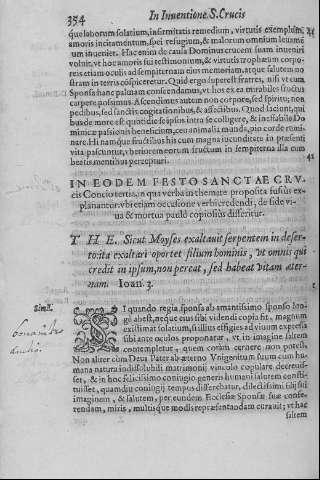 354 In Inuentione S. Crucis
que laborum solatium, infirmitatis remedium, virtutis exemplum,
amoris incitamentum, spei refugium, & malorum omnium leuamē
tum inuenies. Hac enim de causa Dominus crucem suam inueniri
voluit, vt hoc amoris sui testimonium, & virtutis trophæum corpo-
reis etiam oculis ad sempiternam eius memoriam, atque salutem no
stram in terra cōspiceretur. Quid ergo superest fratres, nisi vt cum
Sponsa hanc palmam conscendamus, vt hos ex ea mirabiles fructus
carpere possimus. Ascendimus autem non corpore, sed spiritu; non
pedibus, sed sanctis cogitationibus, & affectibus. Quod faciunt, qui
huius de more est quotidie se ipsos intra se colligere, & ineffabile Do
minicæ passionis beneficium, ceu animalia munda, pio corde rumi-
nare. Hi namque fructibus his cum magna iucunditate in præsenti
vita pascuntur, vberiorem eorum fructum in sempiterna illa cum
beatis mentibus percepturi.
IN EODEM FESTO SANCTAE CRV-
cis Concio tertia, in qua verba in themate proposita fusius ex-
planantur: vbi etiam occasione verbi credendi, de fide vi-
ua & mortua paulò copiosius disseritur.
T H E. Sicut Moyses exaltauit serpentem in deser-
to: ita exaltari oportet filium hominis, vt omnis qui
credit in ipsum, non pereat, sed habeat vitam æter-
nam. Ioan. 3.
Simil.
SI quando regia sponsa ab amantissimo sponso lon-
gè abest, neque eius sibi videndi copia fit, magnum
existimat solatium, si illius effigies ad viuum expressa
sibi ante oculos proponatur, vt in imagine saltem
contempletur, quem coram cernere non potest.
Non aliter cùm Deus Pater ab æterno Vnigenitum suum cum hu-
mana natura indissolubili matrimonij vinculo copulare decreuis-
set, & in hoc felicissimo coniugio generis humani salutem consti-
tuisset, quamdiu coniugij tempus differebatur, dilectissimi filij sui
imaginem, & salutem, per eundem Ecclesiæ Sponsæ suæ confe-
rendam, miris, multisque modis repræsentandam curauit; vt hac
saltem